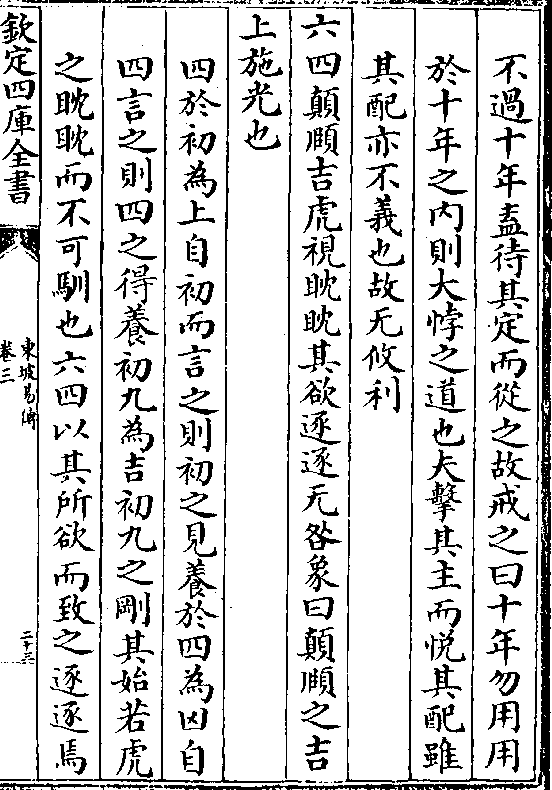 不過十年盍待其定而從之故戒之曰十年勿用用
於十年之内則大悖之道也夫擊其主而悦其配雖
其配亦不義也故无攸利
六四顛頤吉虎視眈眈其欲逐逐无咎象曰顛頤之吉
上施光也
四於初為上自初而言之則初之見養於四為凶自
四言之則四之得養初九為吉初九之剛其始若虎
之眈眈而不可馴也六四以其所欲而致之逐逐焉
欽定四庫全書
東坡易傳
卷三
二十六